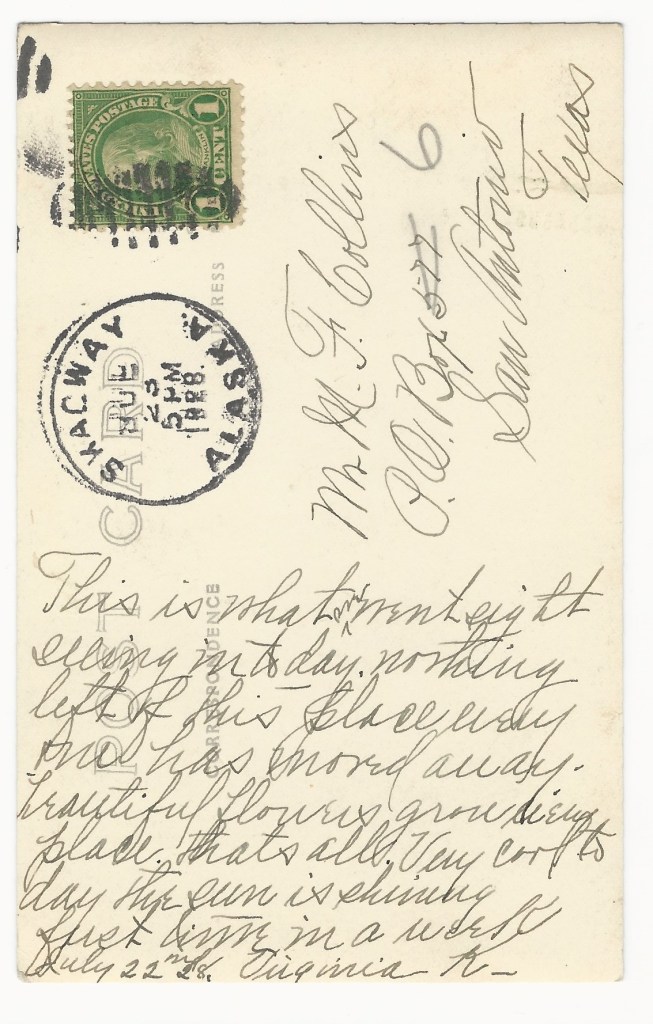 UNITED STATES POSTAGE
1 1
SKAGWAY
JUL
23
5 PM
1928.
ALASKA.
POST CARD
CORRESPONDENCE
ADDRESS
Mr M. F. Collins
P. O. Box 577 6
San Antonio
Texas
This is what we went sight
seeing in to day. nothing
left of this place every
one has moved away.
beautiful flowers grow every
place. thats all. Very cool to
day the sun is shining
first time in a week
July 22nd 28. Virginia K-